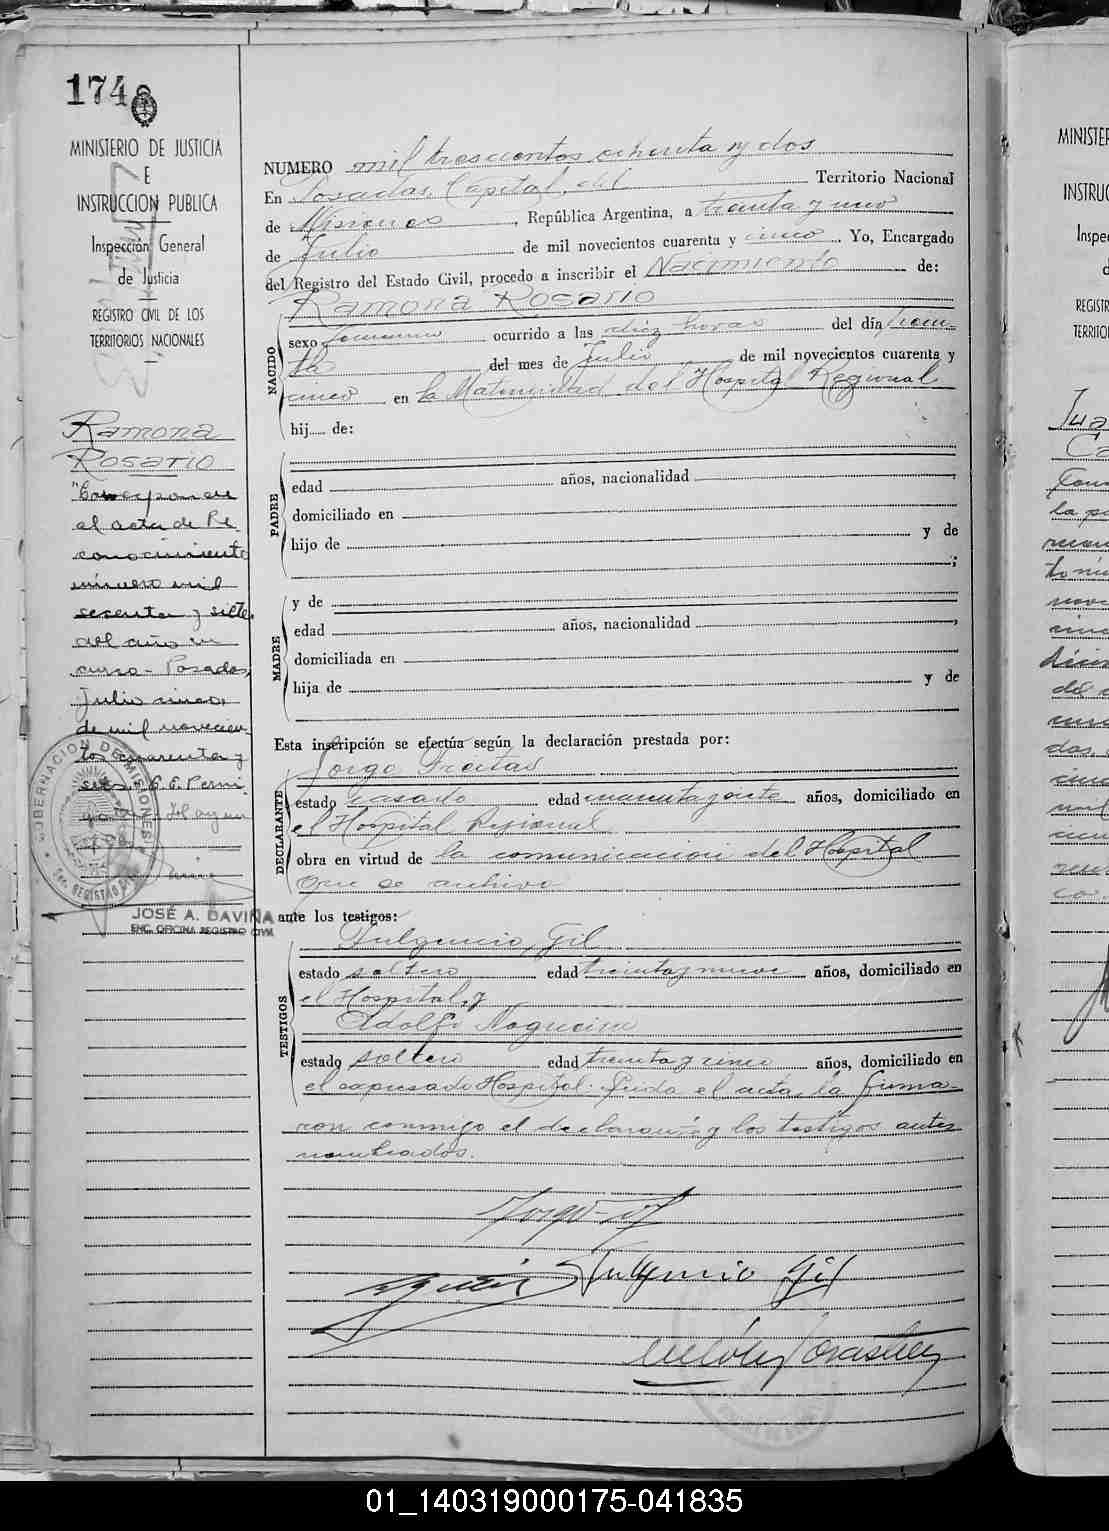 174
MINISTERIO DE JUSTICIA
E
INSTRUCCION PUBLICA
Inspección General
de Justicia
REGISTRO CIVIL DE LOS
TERRITORIOS NACIONALES
Ramona
Rosario
"Corresponde
al acta de Re
conocimiento
número mil
sesenta y siete
del año en
curso - Posadas,
Julio cinco,
de mil novecien
tos cuarenta y
GOBERNACION DE MISIONES
JOSÉ A. DAVIÑA
ENC. OFICINA REGISTRO CIVIL
NUMERO mil trescientos ochenta y dos
En Posadas, Capital del Territorio Nacional
de Misiones, República Argentina, a treinta y uno
de Julio de mil novecientos cuarenta y cinco. Yo, Encargado
del Registro del Estado Civil, procedo a inscribir el Nacimiento de:
NACIDO
Ramona Rosario
sexo femenino ocurrido a las diez horas del día trein-
ta del mes de Julio de mil novecientos cuarenta y
cinco en la Maternidad del Hospital Regional
hij..... de:
PADRE
edad años, nacionalidad ,
domiciliado en
hijo de y de
;
MADRE
y de
edad años, nacionalidad ,
domiciliada en
hija de y de
Esta inscripción se efectúa según la declaración prestada por:
DECLARANTE
Jorge Freitas
estado casado edad cuarenta y siete años, domiciliado en
el Hospital Regional
obra en virtud de la comunicación del Hospital
que se archiva
ante los testigos:
TESTIGOS
Fulgencio Gil
estado soltero edad treinta y nueve años, domiciliado en
el Hospital, y
Adolfo Nogueira
estado soltero edad treinta y cinco años, domiciliado en
el expresado Hospital. Leida el acta, la firma-
ron conmigo el declarante y los testigos antes
nombrados.
Fulgencio Gil
MINISTER
INSTRUC
Inspec
d
REGISTR
TERRITOR
Jua
Ca
la
01_140319000175-041835